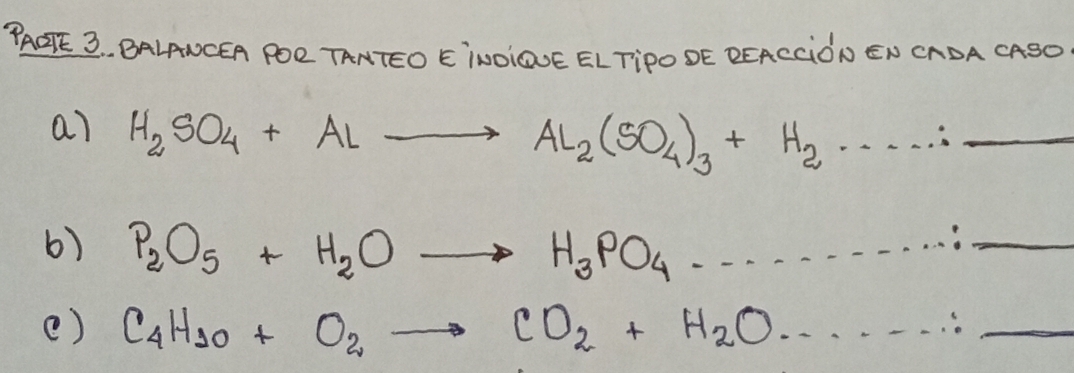 PARTE 3.. BALANCEA POR TANTEO E INDIQUE EL TIPO DE REACCIÓN EN CADA CASO.
a) H₂SO₄ + AL ⟶ AL₂(SO₄)₃ + H₂ .....: ____
b) P₂O₅ + H₂O ⟶ H₃PO₄ ...........: ____
c) C₄H₁₀ + O₂ ⟶ CO₂ + H₂O.......: ____